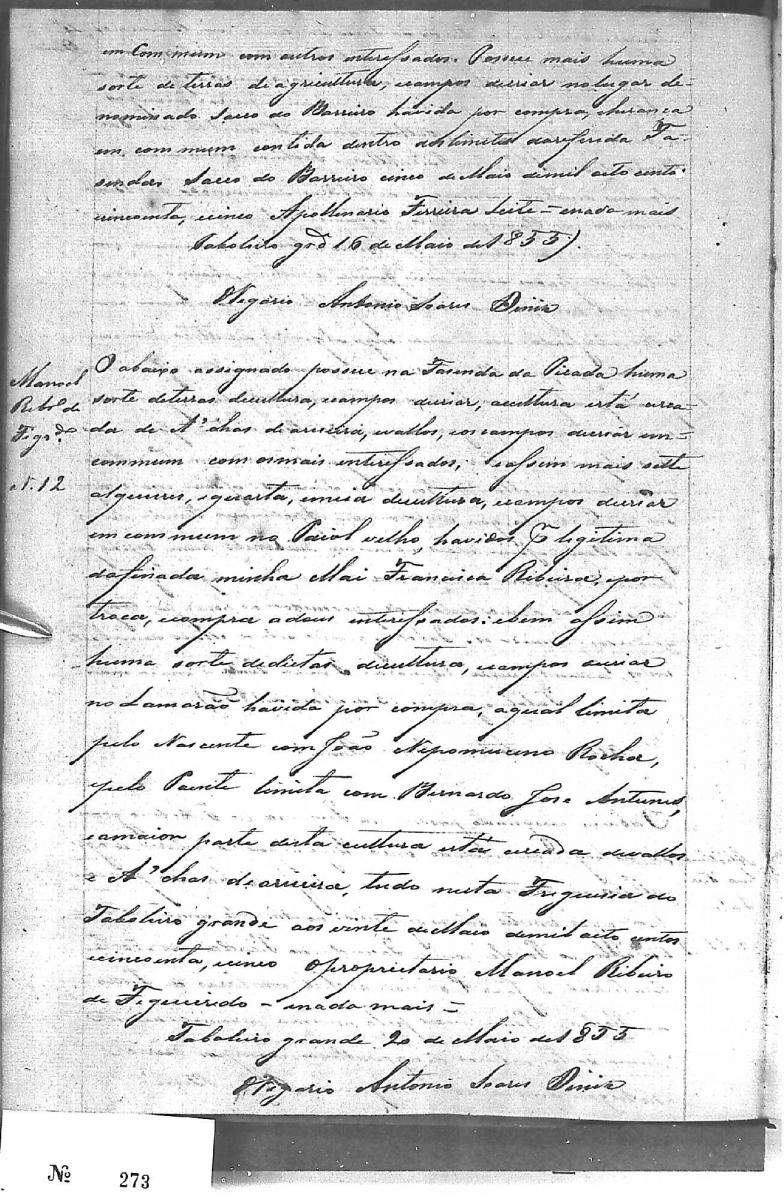 em Commum com outros interessados. Possue mais huma
sorte de terras de agricultura, ecampos decriar nolugar de-
nominado Sacco do Barreiro havida por compra, eherança
em commum contida dentro doslimites dareferida Fa-
senda. Sacco do Barreiro cinco deMaio demil oito cento
ecincoenta, ecinco Apollinario Ferreira Leite = enada mais
Taboleiro grde 16 de Maio de 1855).
Olegario Antonio Soares Diniz
Manoel
Ribro de
Figrdo
N. 12
O abaixo assignado possue na Fasenda da Pisada huma
sorte deterras decultura, ecampos decriar, acultura está cerca-
da de A'chas dearueira, evallos, eos campos decriar em
commum com osmais interessados, eassim mais sette
alqueires, equarta, emeia decultura, ecampos decriar
em commum no Paiol velho, havidos legitima
dafinada minha Mai Francisca Ribeira, epor
troca, ecompra adous interessados: ebem assim
huma sorte deditas decultura, ecampos decriar
no Lamarão havida por compra, aqual limita
pelo Nascente com João Nepomuceno Rocha,
epelo Poente limita com Bernardo Jose Antunes,
eamaior parte desta cultura está cercada devallos
e A'chas dearueira, tudo nesta Freguesia do
Taboleiro grande aos vinte deMaio demil oito centos
ecincoenta, ecinco Oproprietario Manoel Ribeiro
de Figueiredo - enada mais =
Taboleiro grande 20 de Maio de 1855
Olegario Antonio Soares Diniz
Nº 273